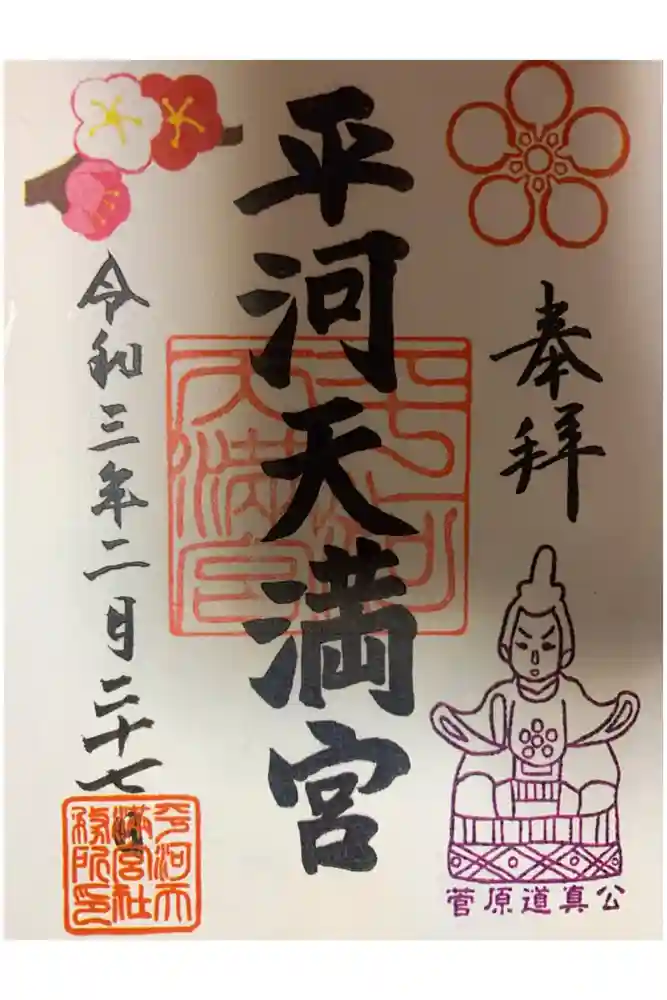 奉拝
平河天満宮
令和三年二月二十七日
菅原道真公
平河天満宮
平河天満宮社務所印